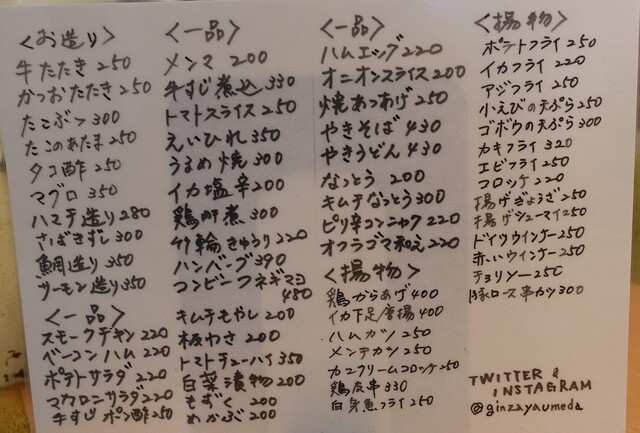 <お造り>
牛たたき 250
かつおたたき 250
たこぶつ 300
たこのあたま 250
タコ酢 250
マグロ 350
ハマチ造り 280
さばきずし 300
鯛造り 350
サーモン造り 350
<一品>
スモークチキン 220
ベーコンハム 220
ポテトサラダ 220
マカロニサラダ 220
牛すじポン酢 250
<一品>
メンマ 200
牛すじ煮込 330
トマトスライス 250
えいひれ 350
うまめ焼 300
イカ塩辛 200
鶏肝煮 300
竹輪きゅうり 220
ハンバーグ 390
コンビーフネギマヨ
480
キムチもやし 200
板わさ 200
トマトチューハイ 350
白菜漬物 200
もずく 200
めかぶ 200
<一品>
ハムエッグ 220
オニオンスライス 200
焼あつあげ 250
やきそば 430
やきうどん 430
なっとう 200
キムチなっとう 300
ピリ辛コンニャク 220
オクラゴマ和え 220
<揚物>
鶏からあげ 400
イカ下足唐揚 400
ハムカツ 250
メンチカツ 250
カニクリームコロッケ 250
鶏皮串 330
白身魚フライ 250
<揚物>
ポテトフライ 250
イカフライ 220
アジフライ 250
小えびの天ぷら 250
ゴボウの天ぷら 300
カキフライ 320
エビフライ 250
コロッケ 220
揚げぎょうざ 250
揚げシューマイ 250
ドイツウインナー 250
赤いウインナー 250
チョリソー 250
豚ロース串カツ 300
TWITTER &
INSTAGRAM
@ginzayaumeda